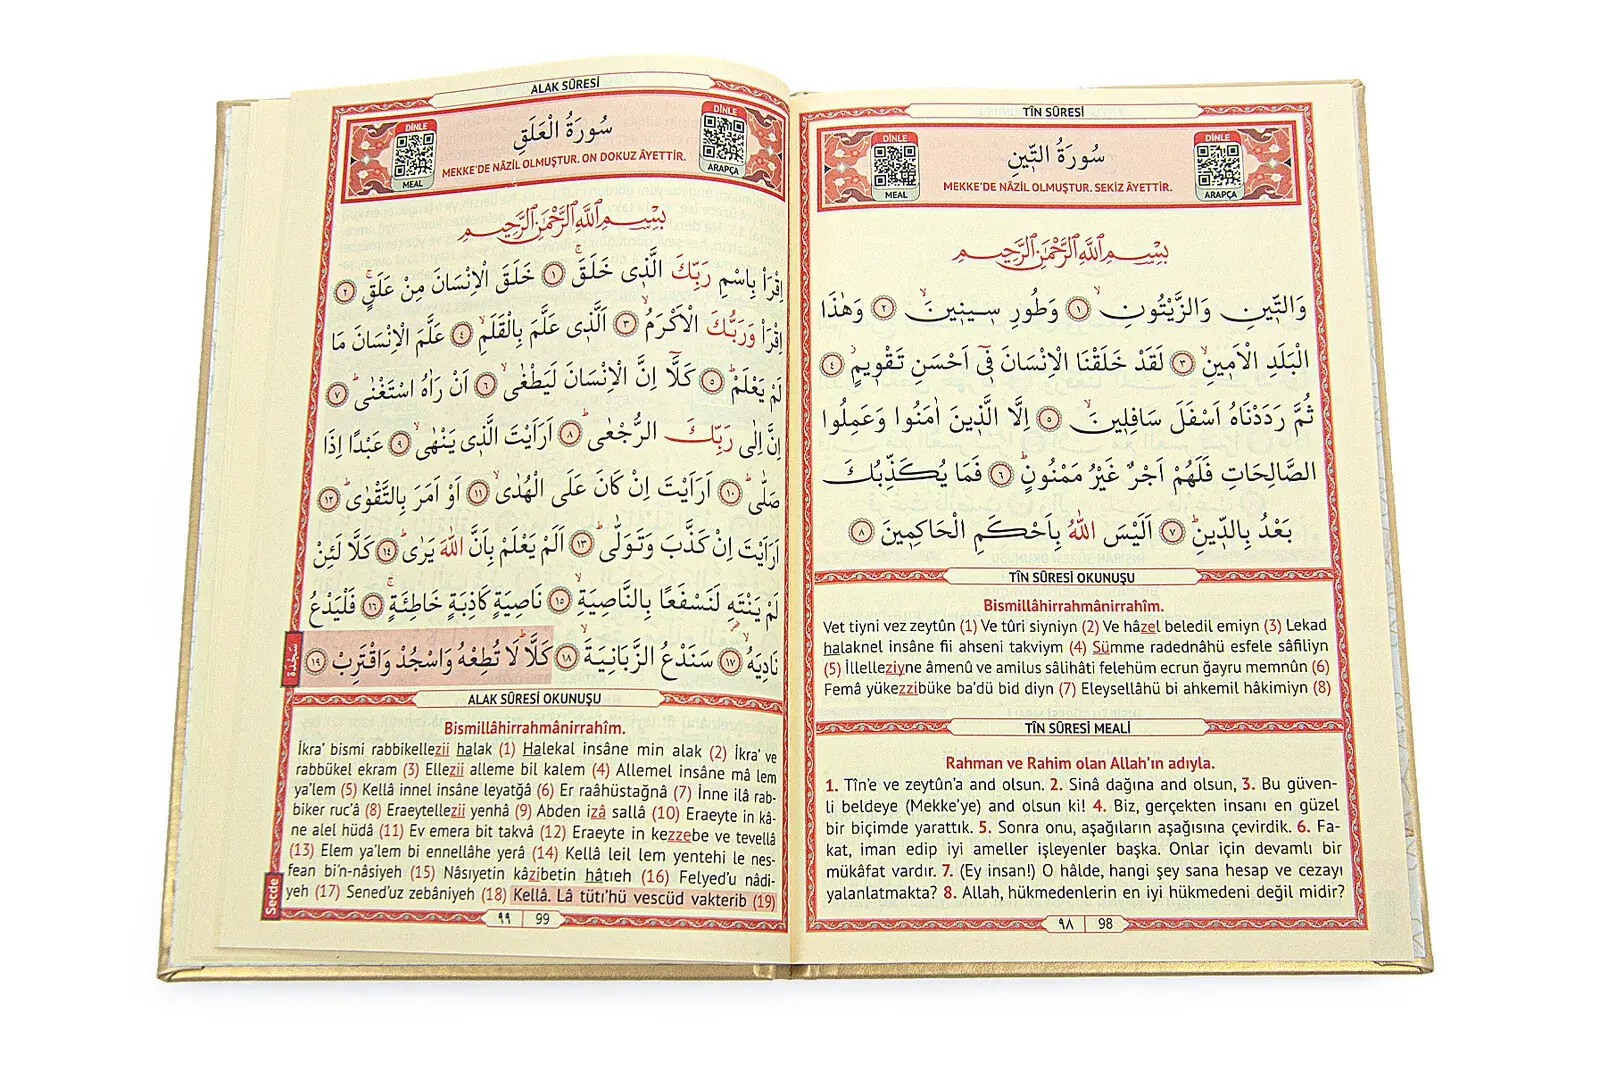 TÎN SÛRESİ
DİNLE
DİNLE
سُورَةُ التّ۪ينِ
MEKKE'DE NÂZİL OLMUŞTUR. SEKİZ ÂYETTİR.
MEAL
ARAPÇA
بِسْمِ اللّٰهِ الرَّحْمٰنِ الرَّح۪يمِ
وَالتّ۪ينِ وَالزَّيْتُونِۙ ﴿١﴾ وَطُورِ س۪ين۪ينَۙ ﴿٢﴾ وَهٰذَا
الْبَلَدِ الْاَم۪ينِۙ ﴿٣﴾ لَقَدْ خَلَقْنَا الْاِنْسَانَ ف۪ٓي اَحْسَنِ تَقْو۪يمٍۘ ﴿٤﴾
ثُمَّ رَدَدْنَاهُ اَسْفَلَ سَافِل۪ينَۙ ﴿٥﴾ اِلَّا الَّذ۪ينَ اٰمَنُوا وَعَمِلُوا
الصَّالِحَاتِ فَلَهُمْ اَجْرٌ غَيْرُ مَمْنُونٍۜ ﴿٦﴾ فَمَا يُكَذِّبُكَ
بَعْدُ بِالدّ۪ينِۜ ﴿٧﴾ اَلَيْسَ اللّٰهُ بِاَحْكَمِ الْحَاكِم۪ينَ ﴿٨﴾
TÎN SÛRESİ OKUNUŞU
Bismillâhirrahmânirrahîm.
Vet tiyni vez zeytûn (1) Ve tûri siyniyn (2) Ve hâzel beledil emiyn (3) Lekad
halaknel insâne fii ahseni takviym (4) Sümme radednâhü esfele sâfiliyn
(5) İllelleziyne âmenû ve amilus sâlihâti felehüm ecrun ğayru memnûn (6)
Femâ yükezzibüke ba'dü bid diyn (7) Eleysellâhü bi ahkemil hâkimiyn (8)
TÎN SÛRESİ MEALİ
Rahman ve Rahim olan Allah'ın adıyla.
1. Tîn'e ve zeytûn'a and olsun. 2. Sinâ dağına and olsun, 3. Bu güven-
li beldeye (Mekke'ye) and olsun ki! 4. Biz, gerçekten insanı en güzel
bir biçimde yarattık. 5. Sonra onu, aşağıların aşağısına çevirdik. 6. Fa-
kat, iman edip iyi ameller işleyenler başka. Onlar için devamlı bir
mükâfat vardır. 7. (Ey insan!) O hâlde, hangi şey sana hesap ve cezayı
yalanlatmakta? 8. Allah, hükmedenlerin en iyi hükmedeni değil midir?
٩٨ 98
ALAK SÛRESİ
DİNLE
DİNLE
سُورَةُ الْعَلَقِ
MEKKE'DE NÂZİL OLMUŞTUR. ON DOKUZ ÂYETTİR.
MEAL
ARAPÇA
بِسْمِ اللّٰهِ الرَّحْمٰنِ الرَّح۪يمِ
اِقْرَأْ بِاسْمِ رَبِّكَ الَّذ۪ي خَلَقَۚ ﴿١﴾ خَلَقَ الْاِنْسَانَ مِنْ عَلَقٍۚ ﴿٢﴾
اِقْرَأْ وَرَبُّكَ الْاَكْرَمُۙ ﴿٣﴾ اَلَّذ۪ي عَلَّمَ بِالْقَلَمِۙ ﴿٤﴾ عَلَّمَ الْاِنْسَانَ مَا
لَمْ يَعْلَمْۜ ﴿٥﴾ كَلَّٓا اِنَّ الْاِنْسَانَ لَيَطْغٰىۙ ﴿٦﴾ اَنْ رَاٰهُ اسْتَغْنٰىۜ ﴿٧﴾
اِنَّ اِلٰى رَبِّكَ الرُّجْعٰىۜ ﴿٨﴾ اَرَاَيْتَ الَّذ۪ي يَنْهٰىۙ ﴿٩﴾ عَبْدًا اِذَا
صَلّٰىۜ ﴿١٠﴾ اَرَاَيْتَ اِنْ كَانَ عَلَى الْهُدٰىۙ ﴿١١﴾ اَوْ اَمَرَ بِالتَّقْوٰىۜ ﴿١٢﴾
اَرَاَيْتَ اِنْ كَذَّبَ وَتَوَلّٰىۜ ﴿١٣﴾ اَلَمْ يَعْلَمْ بِاَنَّ اللّٰهَ يَرٰىۜ ﴿١٤﴾ كَلَّا لَئِنْ
لَمْ يَنْتَهِ لَنَسْفَعًا بِالنَّاصِيَةِۙ ﴿١٥﴾ نَاصِيَةٍ كَاذِبَةٍ خَاطِئَةٍۚ ﴿١٦﴾ فَلْيَدْعُ
نَادِيَهُۙ ﴿١٧﴾ سَنَدْعُ الزَّبَانِيَةَۙ ﴿١٨﴾ كَلَّاۜ لَا تُطِعْهُ وَاسْجُدْ وَاقْتَرِبْ ﴿١٩﴾
سَجْدَة
ALAK SÛRESİ OKUNUŞU
Bismillâhirrahmânirrahîm.
İkra' bismi rabbikellezii halak (1) Halekal insâne min alak (2) İkra' ve
rabbükel ekram (3) Ellezii alleme bil kalem (4) Allemel insâne mâ lem
ya'lem (5) Kellâ innel insâne leyatğâ (6) Er raâhüstağnâ (7) İnne ilâ rab-
biker ruc'â (8) Eraeytellezii yenhâ (9) Abden izâ sallâ (10) Eraeyte in kâ-
ne alel hüdâ (11) Ev emera bit takvâ (12) Eraeyte in kezzebe ve tevellâ
(13) Elem ya'lem bi ennellâhe yerâ (14) Kellâ leil lem yentehi le nes-
fean bi'n-nâsiyeh (15) Nâsıyetin kâzibetin hâtıeh (16) Felyed'u nâdi-
yeh (17) Sened'uz zebâniyeh (18) Kellâ. Lâ tütı'hü vescüd vakterib (19)
Secde
٩٩ 99